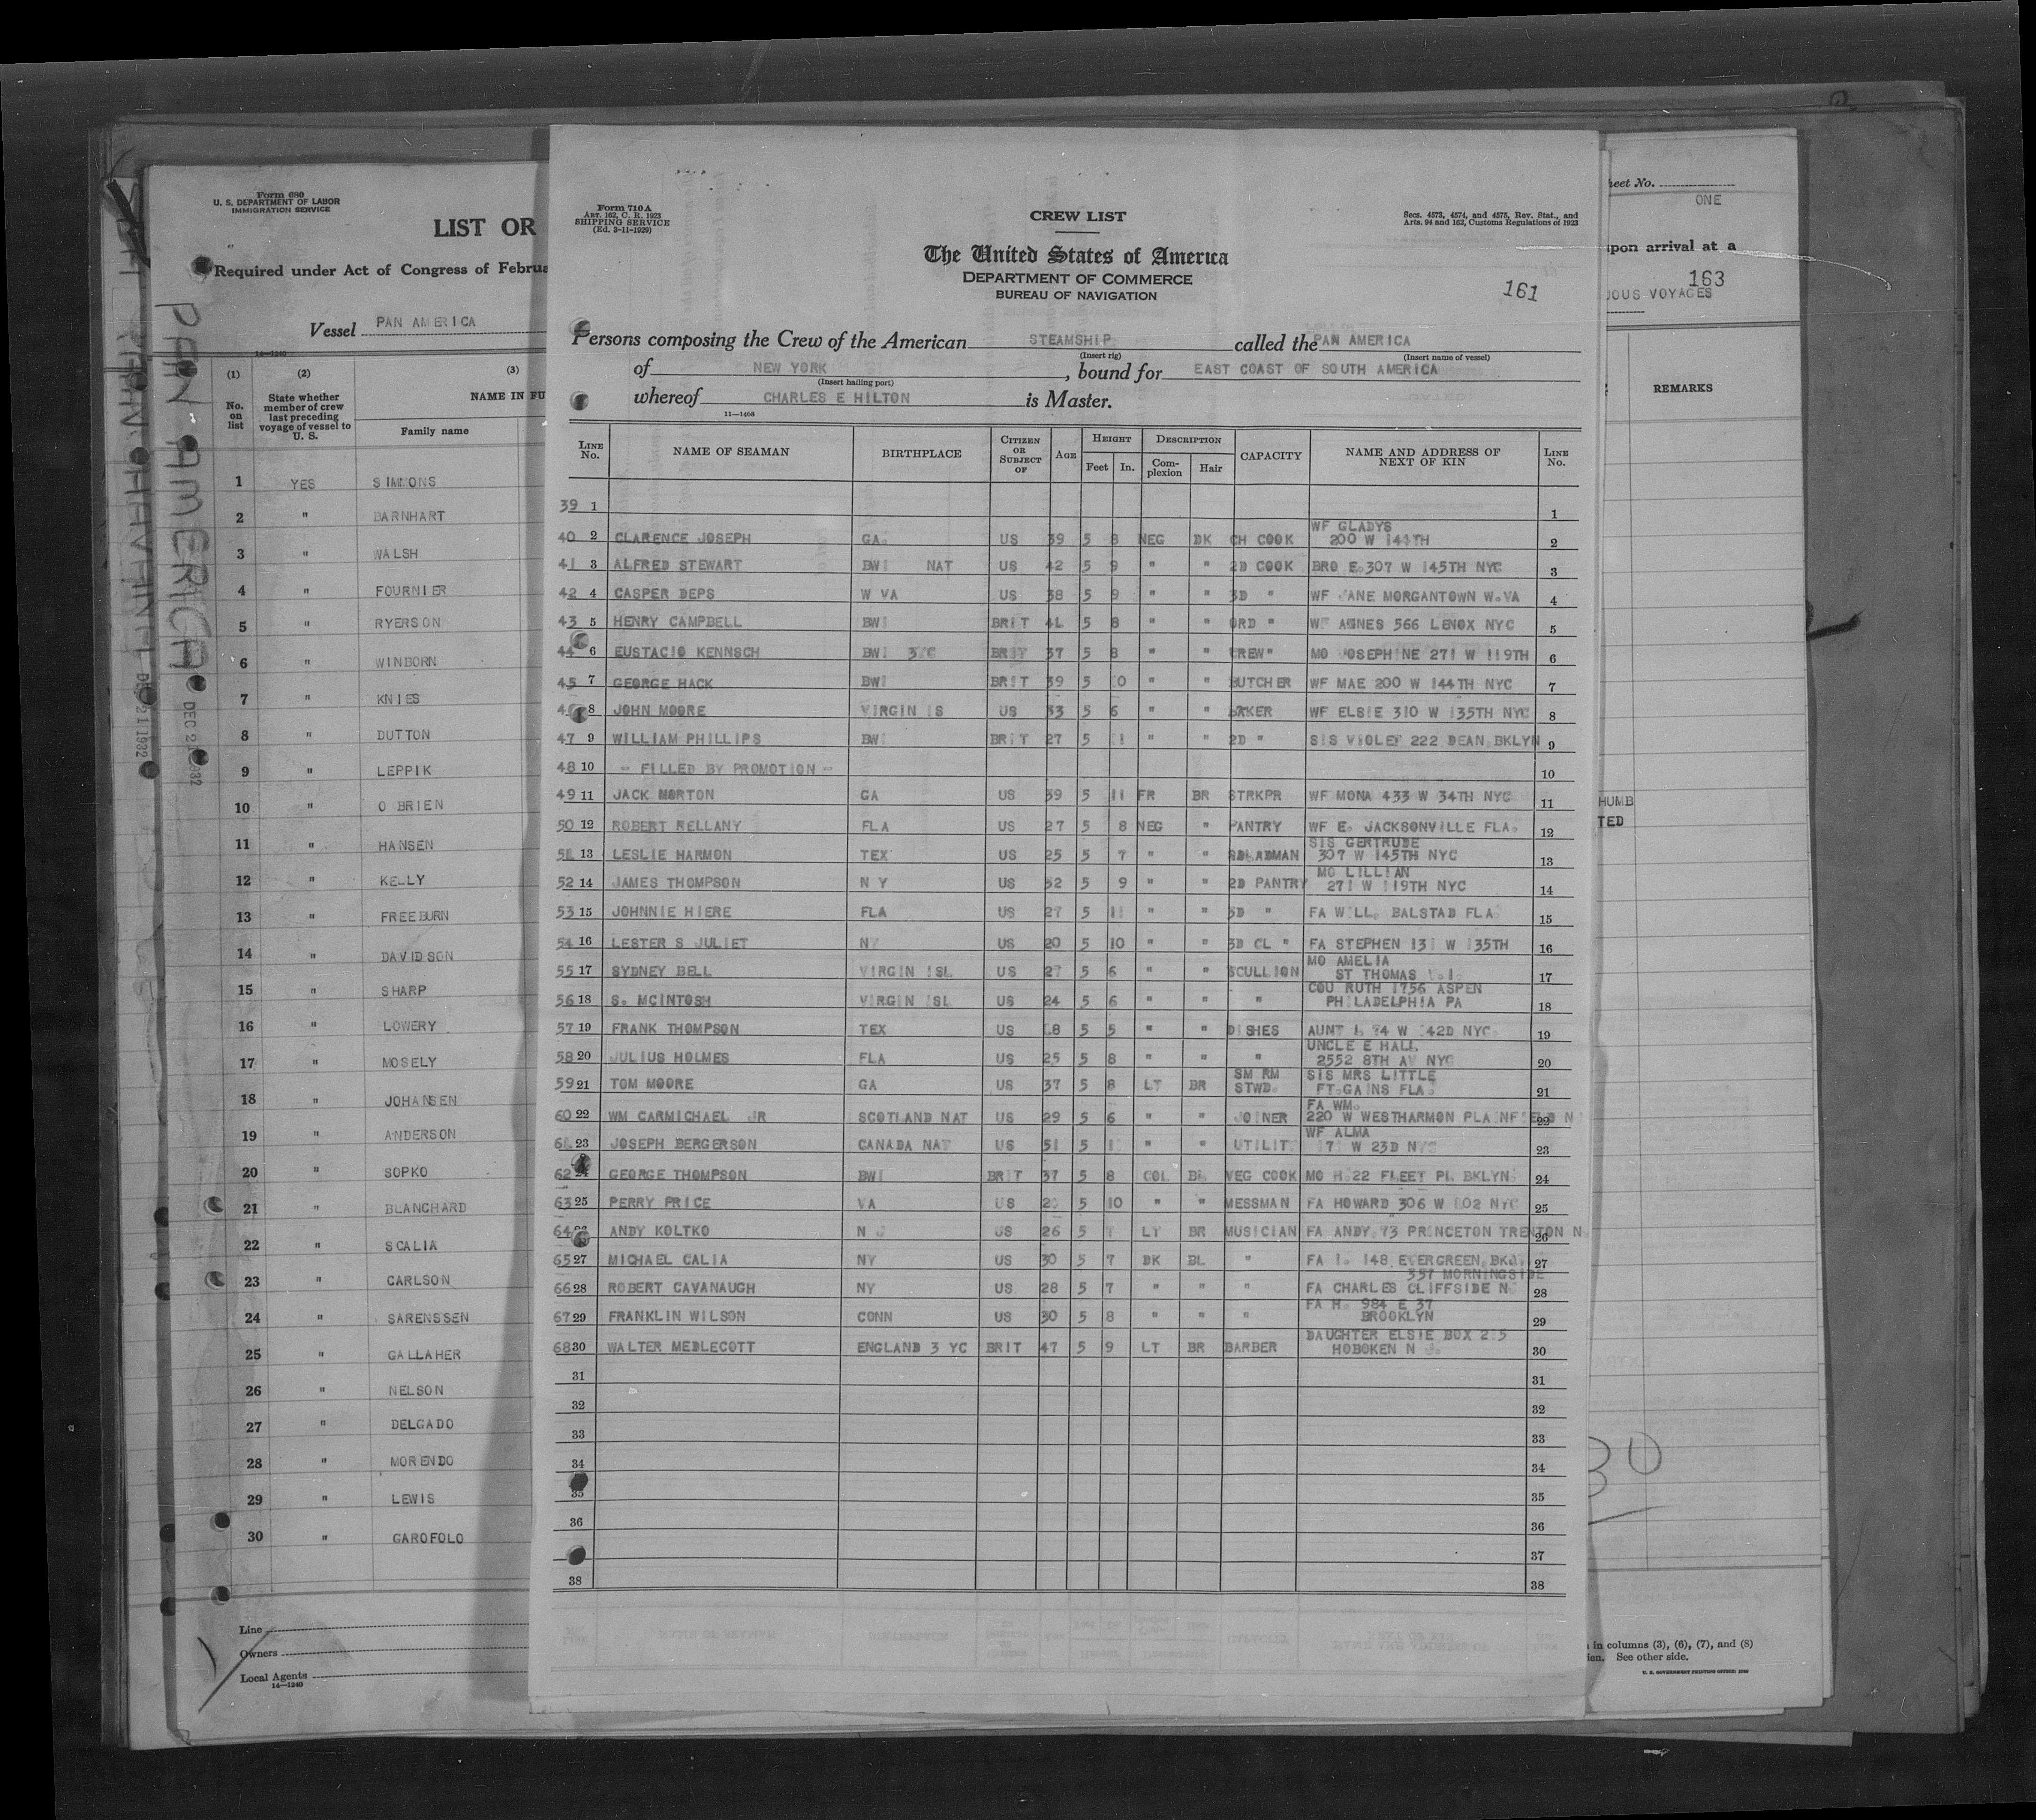 Form 680
U. S. DEPARTMENT OF LABOR
IMMIGRATION SERVICE
LIST OR
Required under Act of Congress of Februa
Vessel PAN AMERICA
14—1240
(1) (2) (3)
No. on list
State whether member of crew last preceding voyage of vessel to U. S.
NAME IN FU
Family name
1 YES SIMMONS
2 " BARNHART
3 " WALSH
4 " FOURNIER
5 " RYERSON
6 " WINBORN
7 " KNIES
8 " DUTTON
9 " LEPPIK
10 " O BRIEN
11 " HANSEN
12 " KELLY
13 " FREEBURN
14 " DAVIDSON
15 " SHARP
16 " LOWERY
17 " MOSELY
18 " JOHANSEN
19 " ANDERSON
20 " SOPKO
21 " BLANCHARD
22 " SCALIA
23 " CARLSON
24 " SARENSSEN
25 " GALLAHER
26 " NELSON
27 " DELGADO
28 " MORENDO
29 " LEWIS
30 " GAROFOLO
Line
Owners
Local Agents
14—1240
PAN AMERICA
DEC 21 1932
Form 710 A
ART. 162, C. R. 1923
SHIPPING SERVICE
(Ed. 3-11-1929)
CREW LIST
Secs. 4573, 4574, and 4575, Rev. Stat., and
Arts. 94 and 162, Customs Regulations of 1923
The United States of America
DEPARTMENT OF COMMERCE
BUREAU OF NAVIGATION
161
Persons composing the Crew of the American STEAMSHIP called the PAN AMERICA
(Insert rig) (Insert name of vessel)
of NEW YORK, bound for EAST COAST OF SOUTH AMERICA
(Insert hailing port)
whereof CHARLES E HILTON is Master.
11—1408
LINE No. NAME OF SEAMAN BIRTHPLACE CITIZEN OR SUBJECT OF AGE HEIGHT Feet In. DESCRIPTION Complexion Hair CAPACITY NAME AND ADDRESS OF NEXT OF KIN LINE No.
39 1 1
WF GLADYS
40 2 CLARENCE JOSEPH GA. US 39 5 8 NEG DK CH COOK 200 W 144TH 2
41 3 ALFRED STEWART BWI NAT US 42 5 9 " " 2D COOK BRO E. 307 W 145TH NYC 3
42 4 CASPER DEPS W VA US 38 5 9 " " 3D " WF JANE MORGANTOWN W.VA 4
43 5 HENRY CAMPBELL BWI BRIT 41 5 8 " " " WF AGNES 566 LENOX NYC 5
44 6 EUSTACIO KENNSCH BWI BRIT 37 5 8 " " CREW" MO JOSEPHINE 271 W 119TH 6
45 7 GEORGE HACK BWI BRIT 39 5 10 " " BUTCHER WF MAE 200 W 144TH NYC 7
8 JOHN MOORE VIRGIN IS US 33 5 6 " " BAKER WF ELSIE 310 W 135TH NYC 8
47 9 WILLIAM PHILLIPS BWI BRIT 27 5 11 " " 2D " SIS VIOLET 222 DEAN, BKLYN 9
48 10 - FILLED BY PROMOTION - 10
49 11 JACK MORTON GA US 39 5 11 FR BR STRKPR WF MONA 433 W 34TH NYC 11
50 12 ROBERT RELLANY FLA US 27 5 8 NEG " PANTRY WF E. JACKSONVILLE FLA. 12
SIS GERTRUDE
51 13 LESLIE HARMON TEX US 25 5 7 " " SALADMAN 307 W 145TH NYC 13
MO LILLIAN
52 14 JAMES THOMPSON N Y US 32 5 9 " " 2D PANTRY 271 W 119TH NYC 14
53 15 JOHNNIE HIERE FLA US 27 5 11 " " 3D " FA WILL. BALSTAD FLA. 15
54 16 LESTER S JULIET NY US 20 5 10 " " 3D CL " FA STEPHEN 131 W 135TH 16
MO AMELIA
55 17 SYDNEY BELL VIRGIN ISL US 27 5 6 " " SCULLION ST THOMAS V.I. 17
COU RUTH 1756 ASPEN
56 18 S. MCINTOSH VIRGIN ISL US 24 5 6 " " " PHILADELPHIA PA 18
57 19 FRANK THOMPSON TEX US 5 5 " " DISHES AUNT 74 W 142D NYC. 19
UNCLE E HALL
58 20 JULIUS HOLMES FLA US 25 5 8 " " " 2552 8TH AV NYC 20
SIS MRS LITTLE
59 21 TOM MOORE GA US 37 5 8 LT BR SM RM STWD. FT.GAINS FLA. 21
FA WM.
60 22 WM CARMICHAEL JR SCOTLAND NAT US 29 5 6 " " JOINER 220 W WESTHARMON PLAINFIELD N 22
WF ALMA
61 23 JOSEPH BERGERSON CANADA NAT US 51 5 " " UTILIT W 23D NYC 23
62 24 GEORGE THOMPSON BWI BRIT 37 5 8 COL BL VEG COOK MO H. 22 FLEET PL BKLYN. 24
63 25 PERRY PRICE VA US 5 10 " " MESSMAN FA HOWARD 306 W 102 NYC 25
64 ANDY KOLTKO N J US 26 5 LT BR MUSICIAN FA ANDY, 73 PRINCETON TRENTON N 26
65 27 MICHAEL CALIA NY US 30 5 7 DK BL " FA 148 EVERGREEN, BK. 27
357 MORNINGSIDE
66 28 ROBERT CAVANAUGH NY US 28 5 7 " " " FA CHARLES CLIFFSIDE N 28
FA H. 984 E 37
67 29 FRANKLIN WILSON CONN US 30 5 8 " " " BROOKLYN 29
DAUGHTER ELSIE BOX
68 30 WALTER MEDLECOTT ENGLAND 3 YC BRIT 47 5 9 LT BR BARBER HOBOKEN N J. 30
31 31
32 32
33 33
34 34
35 35
36 36
37
38 38
heet No.
ONE
upon arrival at a
163
IOUS VOYAGES
REMARKS
HUMB
TED
30
in columns (3), (6), (7), and (8)
ien. See other side.
U. S. GOVERNMENT PRINTING OFFICE